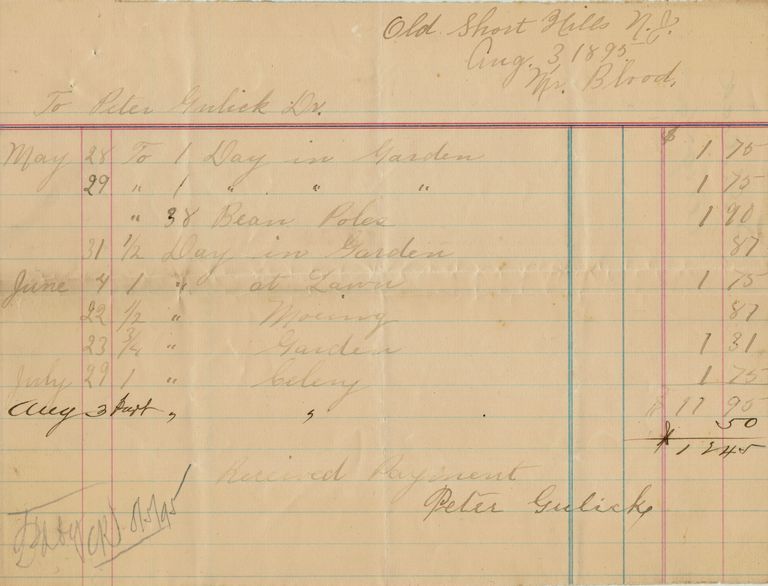 Old Short Hills N.J.
Aug. 3, 1895
Mr. Blood,
To Peter Gulick Dr.
May 28 To 1 Day in Garden $ 1 75
29 " 1 " " " 1 75
" 38 Bean Poles 1 90
31 1/2 Day in Garden 87
June 4 1 " at Lawn 1 75
22 1/2 " Moeing 87
23 3/4 " Garden 1 31
July 29 1 " Celery 1 75
Aug 3 Part " " $ 11 95
50
$ 12 45
Received Payment
Peter Gulick
8/5/95